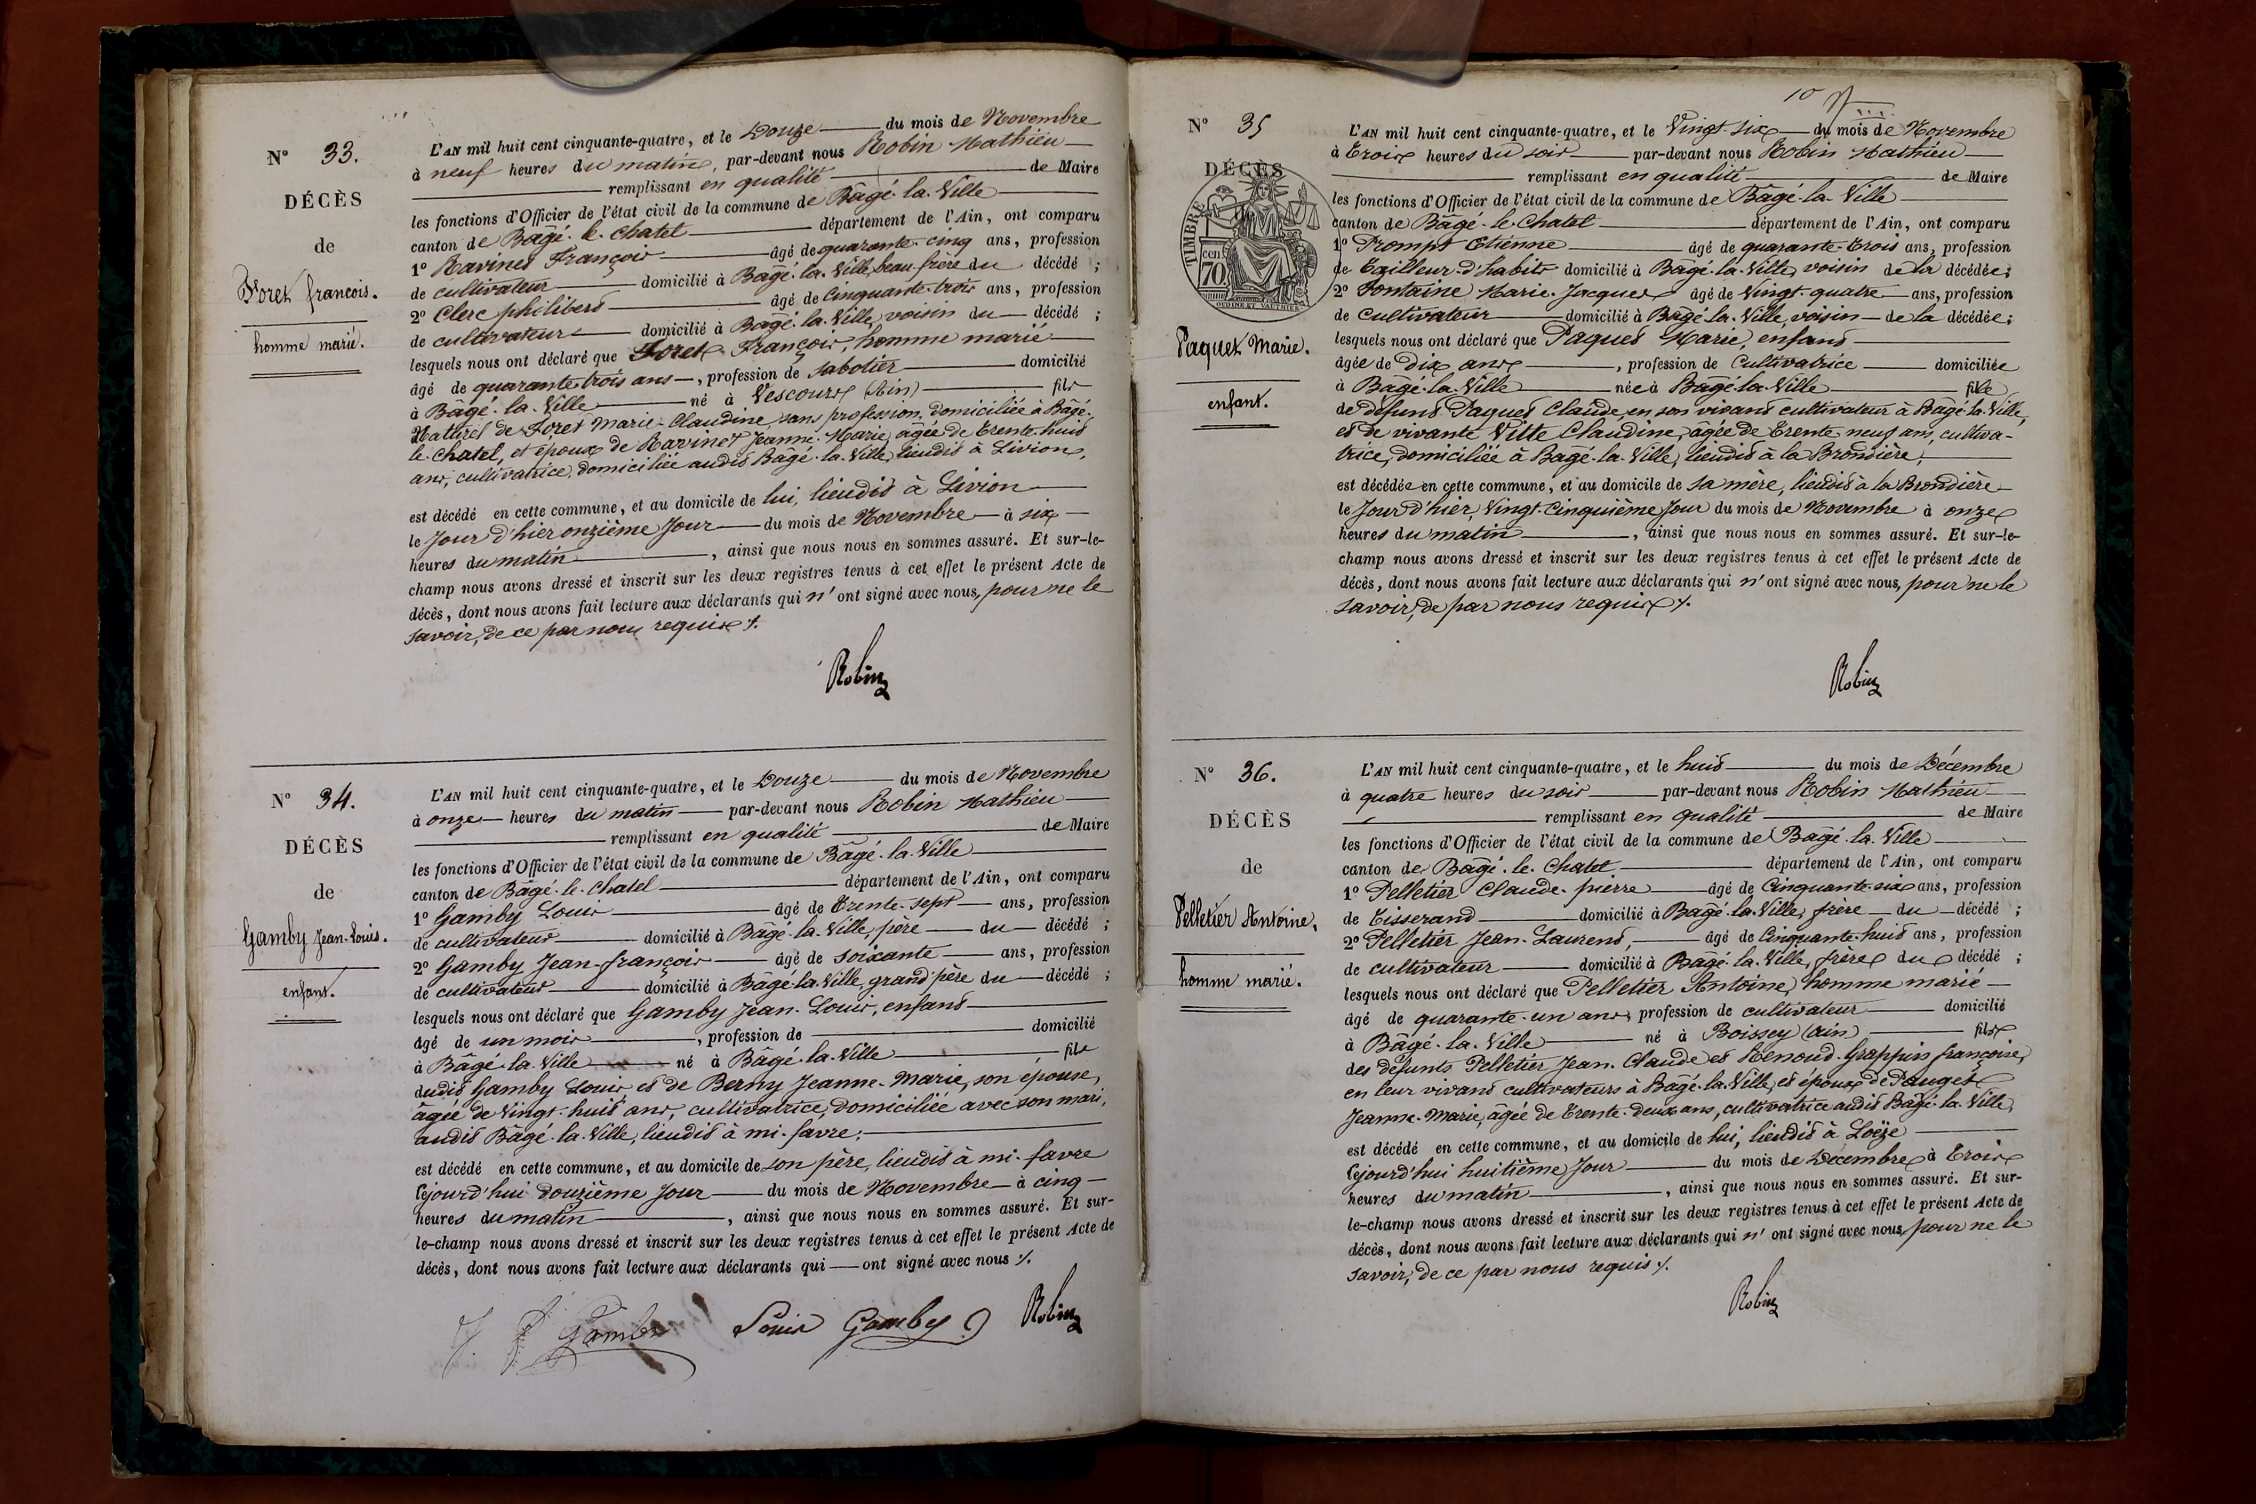 N° 33.
DÉCÈS
de
Foret françois.
homme marié.
L'AN mil huit cent cinquante-quatre, et le Douze du mois de Novembre
à neuf heures du matin, par-devant nous Robin Mathieu
remplissant en qualité de Maire
les fonctions d'Officier de l'état civil de la commune de Bâgé-la-Ville
canton de Bâgé-le-Chatel département de l'Ain, ont comparu
1° Ravinet François âgé de quarante-cinq ans, profession
de cultivateur domicilié à Bâgé-la-Ville, beau-frère du décédé ;
2° Clerc philibert âgé de Cinquante-trois ans, profession
de cultivateur domicilié à Bâgé-la-Ville, voisin du décédé ;
lesquels nous ont déclaré que Foret François, homme marié
âgé de quarante trois ans, profession de sabotier domicilié
à Bâgé-la-Ville né à Vescours (Ain) fils
Naturel de Foret Marie-Claudine, sans profession, domiciliée à Bâgé-
le-Chatel, et époux de Ravinet Jeanne-Marie, âgée de trente-huit
ans, cultivatrice, domiciliée audit Bâgé-la-Ville, lieudit à Livion,
est décédé en cette commune, et au domicile de lui, lieudit à Livion
le Jour d'hier onzième Jour du mois de Novembre à six
heures du matin, ainsi que nous nous en sommes assuré. Et sur-le-
champ nous avons dressé et inscrit sur les deux registres tenus à cet effet le présent Acte de
décès, dont nous avons fait lecture aux déclarants qui n'ont signé avec nous, pour ne le
savoir, de ce par nous requis ./.
Robin
N° 34.
DÉCÈS
de
Gamby Jean-Louis.
enfant.
L'AN mil huit cent cinquante-quatre, et le Douze du mois de Novembre
à onze heures du matin par-devant nous Robin Mathieu
remplissant en qualité de Maire
les fonctions d'Officier de l'état civil de la commune de Bâgé-la-Ville
canton de Bâgé-le-Chatel département de l'Ain, ont comparu
1° Gamby Louis âgé de trente-sept ans, profession
de cultivateur domicilié à Bâgé-la-Ville, père du décédé ;
2° Gamby Jean-françois âgé de soixante ans, profession
de cultivateur domicilié à Bâgé-la-Ville, grand père du décédé ;
lesquels nous ont déclaré que Gamby Jean-Louis, enfant
âgé de un mois, profession de domicilié
à Bâgé-la-Ville né à Bâgé-la-Ville fils
dudit Gamby Louis et de Berny Jeanne-Marie, son épouse,
âgée de Vingt-huit ans, cultivatrice, domiciliée avec son mari,
audit Bâgé-la-Ville, lieudit à mi-favre;
est décédé en cette commune, et au domicile de son père, lieudit à mi-favre
cejourd'hui douzième Jour du mois de Novembre à cinq
heures du matin, ainsi que nous nous en sommes assuré. Et sur-
le-champ nous avons dressé et inscrit sur les deux registres tenus à cet effet le présent Acte de
décès, dont nous avons fait lecture aux déclarants qui ont signé avec nous ./.
Gamby Louis Gamby Robin
10
N° 35
DÉCÈS
TIMBRE
70 cen
Paquet Marie.
enfant.
L'AN mil huit cent cinquante-quatre, et le Vingt-six du mois de Novembre
à trois heures du soir par-devant nous Robin Mathieu
remplissant en qualité de Maire
les fonctions d'Officier de l'état civil de la commune de Bâgé-la-Ville
canton de Bâgé-le-Chatel département de l'Ain, ont comparu
1° Prompt Etienne âgé de quarante-trois ans, profession
de tailleur-d'habits domicilié à Bâgé-la-Ville, voisin de la décédée;
2° Fontaine Marie-Jacques âgé de Vingt-quatre ans, profession
de cultivateur domicilié à Bâgé-la-Ville, voisin de la décédée;
lesquels nous ont déclaré que Paquet Marie, enfant
âgée de Dix ans, profession de Cultivatrice domiciliée
à Bâgé-la-Ville née à Bâgé-la-Ville fille
de défunt Paquet Claude, en son vivant cultivateur à Bâgé-la-Ville,
et de vivante Vitte Claudine, âgée de trente neuf ans, cultiva-
trice, domiciliée à Bâgé-la-Ville, lieudit à la Brondière,
est décédée en cette commune, et au domicile de sa mère, lieudit à la Brondière
le Jour d'hier, Vingt-Cinquième Jour du mois de Novembre à onze
heures du matin, ainsi que nous nous en sommes assuré. Et sur-le-
champ nous avons dressé et inscrit sur les deux registres tenus à cet effet le présent Acte de
décès, dont nous avons fait lecture aux déclarants qui n'ont signé avec nous, pour ne le
savoir, de par nous requis ./.
Robin
N° 36.
DÉCÈS
de
Pelletier Antoine.
homme marié.
L'AN mil huit cent cinquante-quatre, et le huit du mois de Décembre
à quatre heures du soir par-devant nous Robin Mathieu
remplissant en qualité de Maire
les fonctions d'Officier de l'état civil de la commune de Bâgé-la-Ville
canton de Bâgé-le-Chatel département de l'Ain, ont comparu
1° Pelletier Claude-pierre âgé de Cinquante-six ans, profession
de Tisserand domicilié à Bâgé-la-Ville, frère du décédé ;
2° Pelletier Jean-Laurent, âgé de Cinquante-huit ans, profession
de cultivateur domicilié à Bâgé-la-Ville, frère du décédé ;
lesquels nous ont déclaré que Pelletier Antoine, homme marié
âgé de quarante-un ans, profession de cultivateur domicilié
à Bâgé-la-Ville né à Boissey (Ain) fils
des défunts Pelletier Jean-Claude et Renoud-Grappin françoise,
en leur vivant cultivateurs à Bâgé-la-Ville, et époux de Pauget
Jeanne-Marie, âgée de trente-deux ans, cultivatrice audit Bâgé-la-Ville,
est décédé en cette commune, et au domicile de lui, lieudit à Loëze
cejourd'hui huitième Jour du mois de Décembre à trois
heures du matin, ainsi que nous nous en sommes assuré. Et sur-
le-champ nous avons dressé et inscrit sur les deux registres tenus à cet effet le présent Acte de
décès, dont nous avons fait lecture aux déclarants qui n'ont signé avec nous, pour ne le
savoir, de ce par nous requis ./.
Robin